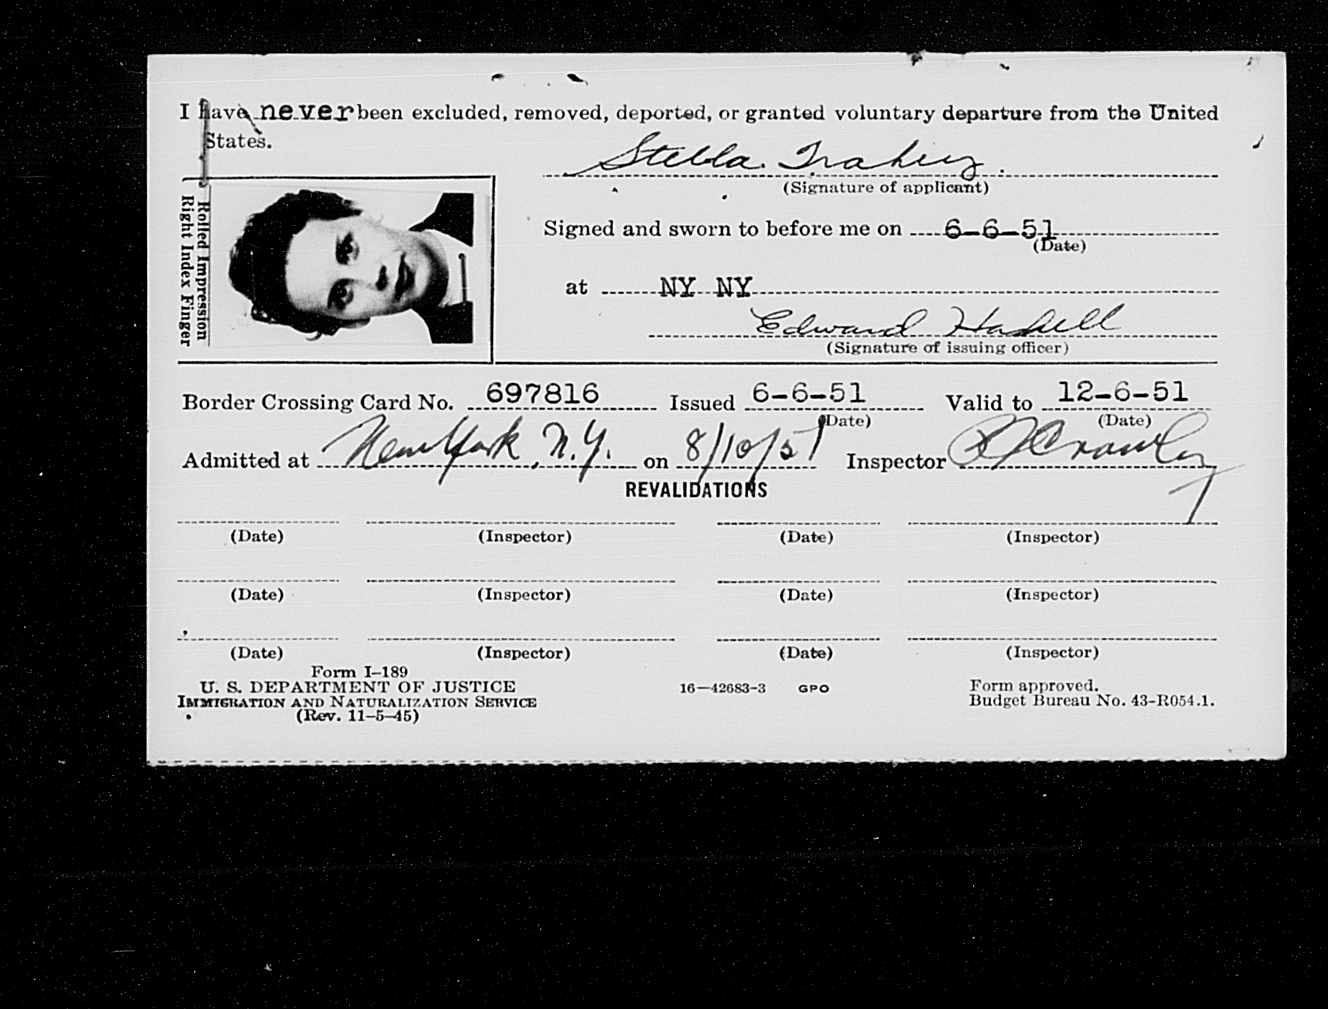 I have never been excluded, removed, deported, or granted voluntary departure from the United
States.
Stella Trahey
(Signature of applicant)
Rolled Impression
Right Index Finger
Signed and sworn to before me on 6-6-51
(Date)
at NY NY
Edward
(Signature of issuing officer)
Border Crossing Card No. 697816 Issued 6-6-51 Valid to 12-6-51
(Date) (Date)
Admitted at New York, N.Y. on 8/10/51 Inspector
REVALIDATIONS
(Date) (Inspector) (Date) (Inspector)
(Date) (Inspector) (Date) (Inspector)
(Date) (Inspector) (Date) (Inspector)
Form I-189
U. S. DEPARTMENT OF JUSTICE 16—42683-3 GPO Form approved.
IMMIGRATION AND NATURALIZATION SERVICE Budget Bureau No. 43-R054.1.
(Rev. 11-5-45)